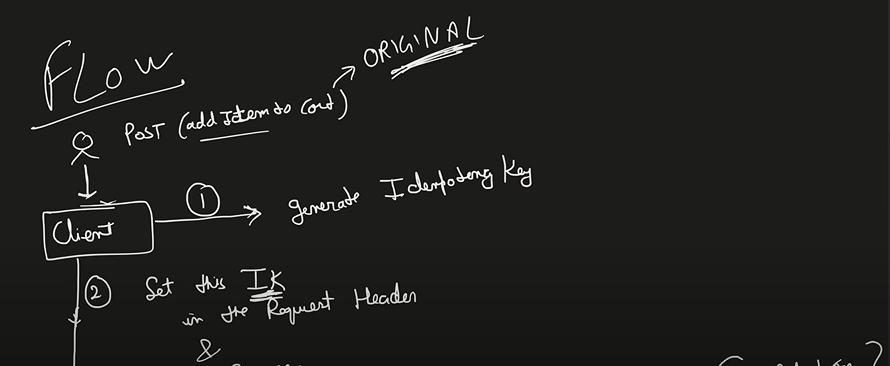 FLOW
ORIGINAL
POST (add Item to Cart)
1
generate Idempotency Key
Client
2 Set this IK
in the Request Header
&